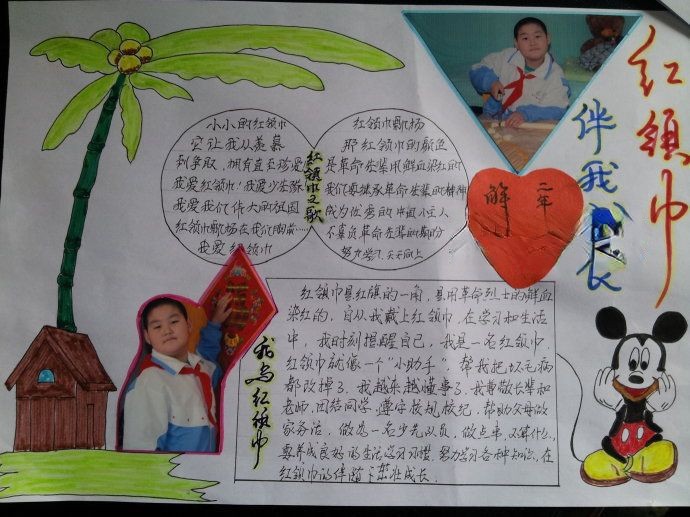 红领巾
伴我成长
二年
解
红领巾之歌
小小的红领巾
它让我从羡慕
到争取，拥有直至珍爱
我爱红领巾！我爱少先队
我爱我们伟大的祖国
红领巾飘扬在我们胸前……
我爱红领巾
红领巾飘扬
那红领巾的颜色
是革命先辈用鲜血染红的
我们要继承革命先辈的精神
成为优秀的中国小主人
不辜负革命先辈的期望
努力学习天天向上
我与红领巾
红领巾是红旗的一角，是用革命烈士的鲜血
染红的，自从我戴上红领巾，在学习和生活
中，我时刻提醒自己，我是一名红领巾
红领巾就像一个“小助手”，帮我把坏毛病
都改掉了，我越来越懂事了，我尊敬长辈和
老师，团结同学，遵守校规校纪，帮助父母做
家务活，做为一名少先队员，做点事，不算什么，
要养成良好的生活学习习惯，努力学习各种知识，在
红领巾的伴随下茁壮成长．